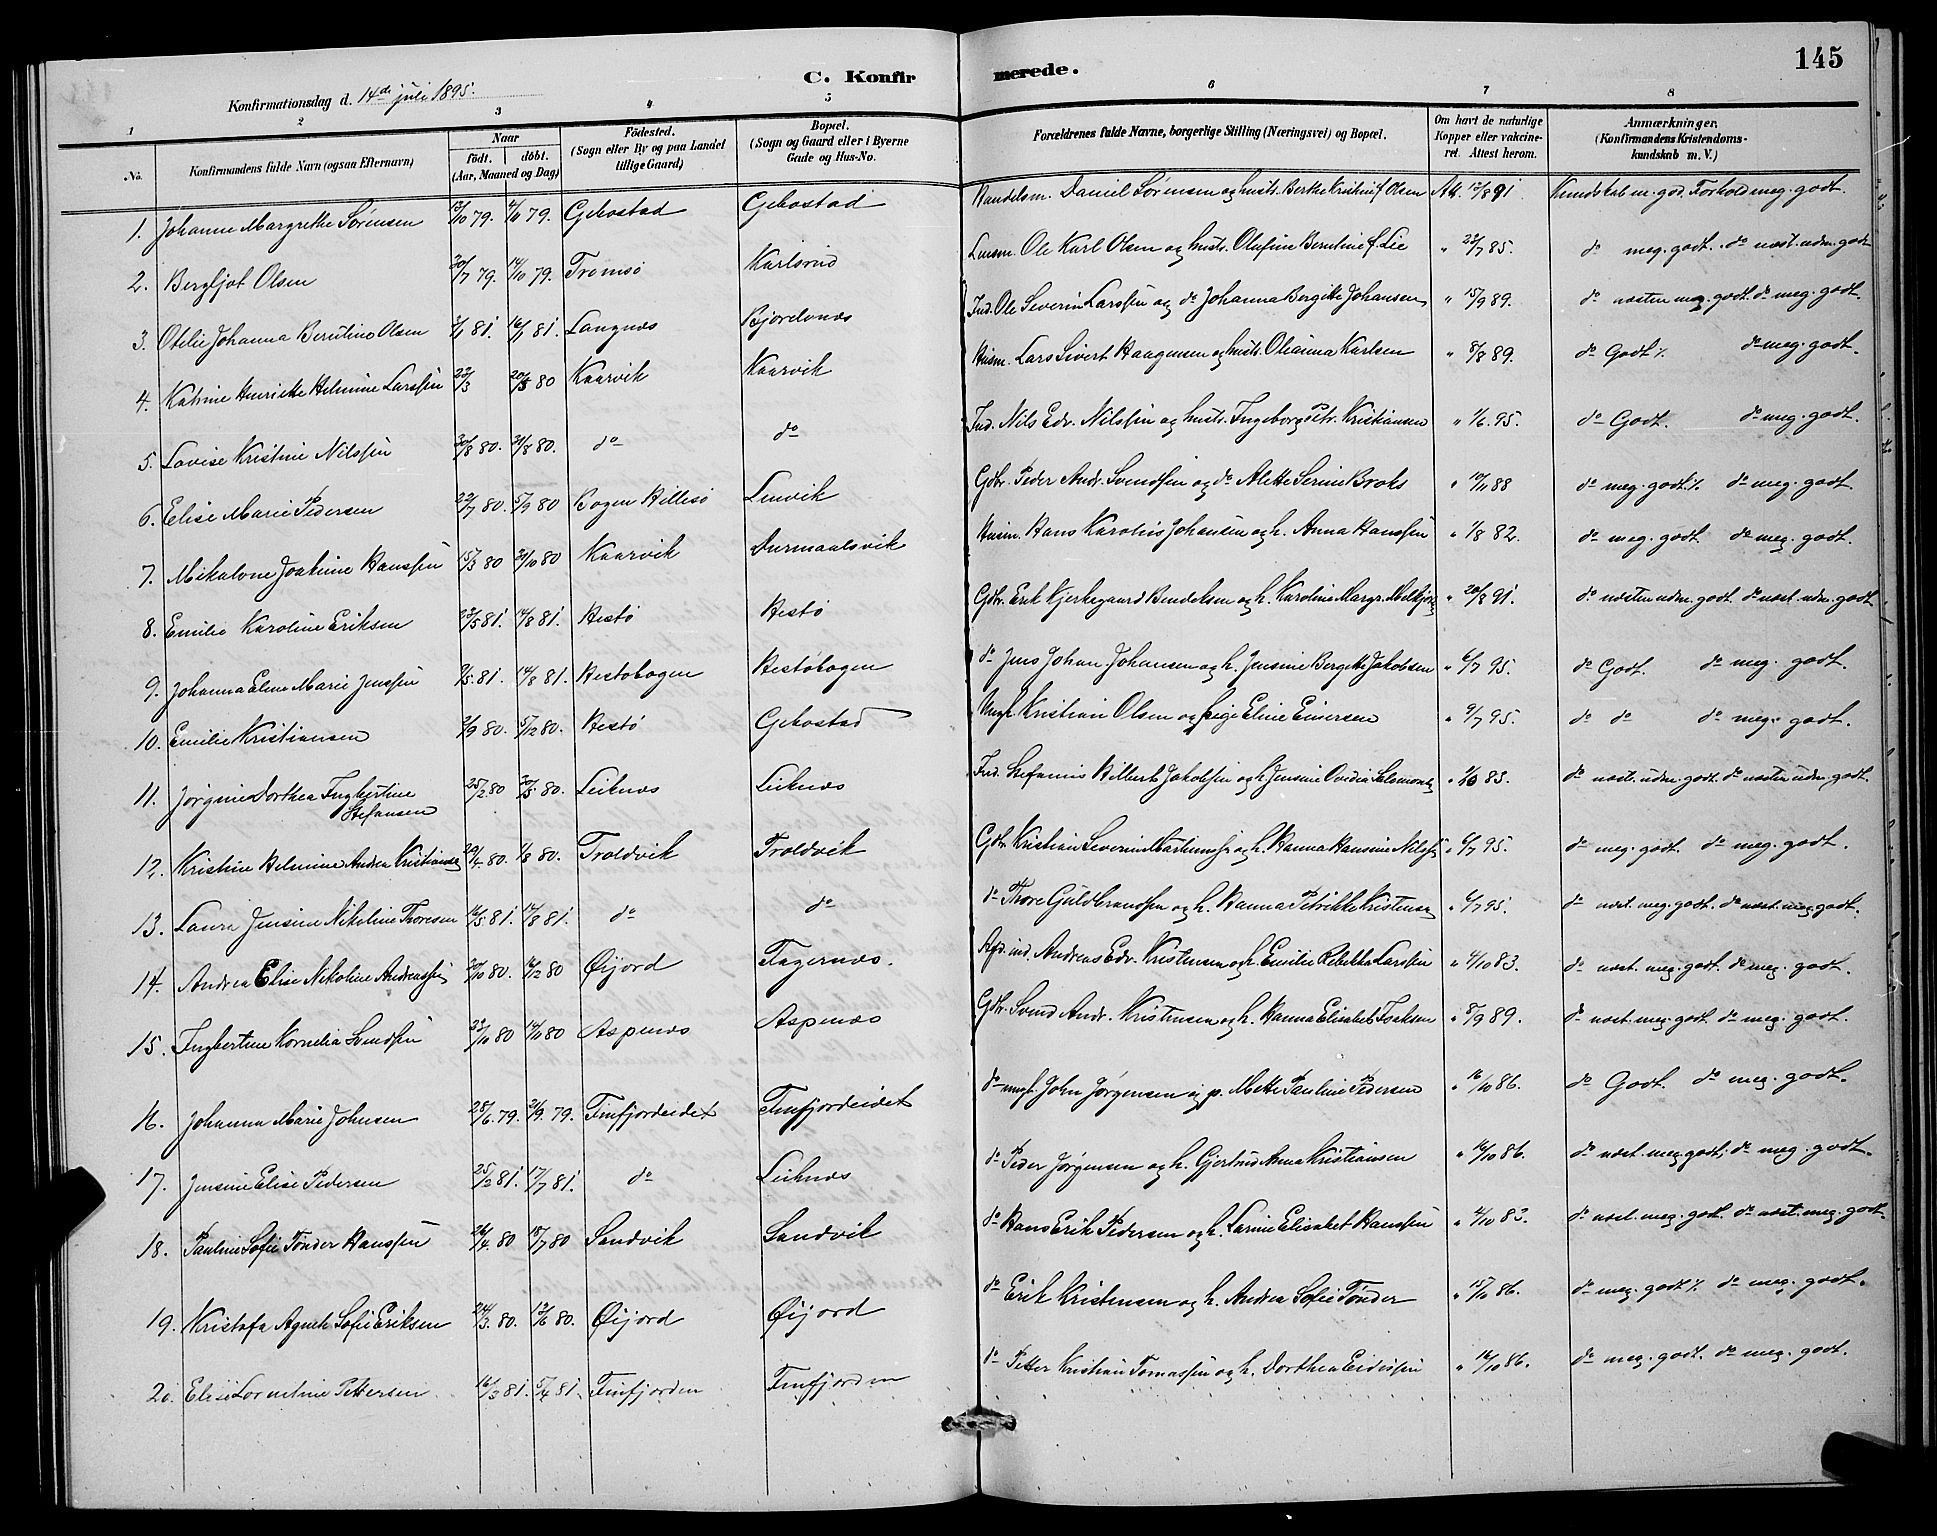 145
C. Konfirmerede.
Konfirmationsdag d. 14de juli 1895.
1 2 3 4 5 6 7 8
No.
Konfirmandens fulde Navn (ogsaa Efternavn)
Naar
født. døbt.
(Aar, Maaned og Dag)
Fødested.
(Sogn eller By og paa Landet
tillige Gaard)
Bopæl.
(Sogn og Gaard eller i Byerne
Gade og Hus-No.
Forældrenes fulde Navne, borgerlige Stilling (Næringsvei) og Bopæl.
Om havt de naturlige
Kopper eller vakcine-
ret. Attest herom.
Anmærkninger,
(Konfirmandens Kristendoms-
kundskab m. V.)
1. Johanne Margrethe Sørensen 79. 79. Gibostad Gibostad Handelsm. Daniel Sørensen og hustr. Berthe Kristine f. Olsen Att. 12/8 91 Kundskab m. god. Forhold meg. godt.
2. Bergljot Olsen 30/7 79. 14/10 79. Tromsø Karlsrud Lensm. Ole Karl Olsen og hustr. Olufine Berntine f. Lie " 22/7 85. do meg. godt. do næst. udm. godt
3. Otelie Johanna Berntine Olsen 81 81. Langnæs Bjorelvnes Ind. Ole Severin Larssen og do Johanna Bergitte Johansen " 15/9 89. do næsten meg. godt. do meg. godt.
4. Katrine Henriette Helmine Larssen 22/3 20/5 80 Kaarvik Kaarvik Husm. Lars Sivert Haagensen og hustr. Olianna Karlsen " 8/8 89. do Godt % do meg. godt.
5. Lovise Kristine Nilssen 80. 80. do do Ind. Nils Edv. Nilssen og hustr. Ingeborg Petr. Kristiansen " 1/6. 95. do Godt. do meg. godt.
6. Elise Marie Pedersen 22/7 80. 5/9 80 Bogen Hillesø Lenvik Gdbr. Peder Andr. Svendsen og do Alette Serine Broks " 10/11 88 do meg. godt % do meg. godt.
7. Mikalone Joakime Hanssen 15/3 80 31/10 80 Kaarvik Durmaalsvik Husm. Hans Karolius Johansen og h. Anna Hanssen " 1/8 82. do meg. godt do meg. godt.
8. Emilie Karoline Eriksen 81. 14/8 81. Hestø Hestø Gdbr. Erik Kjerkegaard Bendiksen og h. Karoline Margr. " 20/8 91. do næsten udm. godt. do næst. udm. godt
9. Johanna Eline Marie Jenssen 81. 14/8 81. Hestøbogen Hestøbogen do Jens Johan Johansen og h. Jensine Bergitte Jakobsen " 6/7 95. do Godt. do meg. godt.
10. Emilie Kristiansen 80. 5/12 80. Hestø Gibostad Ungk. Kristian Olsen og pige Eline Einersen " 9/7 95. do do do meg. godt.
11. Jørgine Dorthea Ingbertine Stefansen 25/2 80 30/5 80. Leiknes Leiknes Ind. Stefanus Hilbert Jakobsen og h. Jensine Ovidia " 83. do næst. udm. godt. do næsten udm. godt.
12. Kristine Helmine Andrea Kristiansen 80. 1/8 80. Troldvik Troldvik Gdbr. Kristian Severin og h. Hanna Hansine " 6/7 95. do meg. godt. do meg. godt.
13. Laura Jensine Nikoline Thoresen 81. 81. do do do Thore Guldbrandsen og h. Hanna Petrikke Kristensen " 6/7 95. do næst. meg. godt. do næst. meg. godt.
14. Andrea Elise Nikoline Andreassen 80. 80 Øijord Fagernæs. Andreas Edv. Kristensen og h. Emilie Rebekka Larssen " 4/10 83. do næst. meg. godt. do meg. godt.
15. Ingbertine Kornelia Svendsen 80 80 Aspenæs Aspenæs Gdbr. Svend Andr. Kristensen og h. Hanna Elisabet Isaksen " 8/9 89. do næst. meg. godt do meg. godt.
16. Johanna Marie Johnsen 28/6. 79. 21/9. 79. Finfjordeidet Finfjordeidet do ungk. John Jørgensen og p. Mette Pauline Pedersen " 16/10 86. do Godt. do meg. godt.
17. Jensine Elise Pedersen 25/2 81. 17/7 81. do Leiknes do Peder Jørgensen og h. Gjertrud Anna Kristiansen " 16/10 86. do næst. meg. godt. do meg. godt.
18. Pauline Sofie Tønder Hanssen 26/4. 80 18/7 80 Sandvik Sandvik do Hans Erik Pedersen og h. Larine Elisabet Hanssen " 4/10 83. do næst. meg. godt. do næst. meg. godt.
19. Kristofa Agnete Sofie Eriksen 24/3. 80. 13/6 80. Øijord Øijord do Erik Kristensen og h. Andrea Sofie Tønder " 86. do meg. godt % do meg. godt.
20. Elise Lorentine Pettersen 16/2 81. 5/4 81. Finfjorden Finfjorden do Petter Kristian Tomassen og h. Dorthea Eidissen " 16/10 86. do meg. godt. do meg. godt.